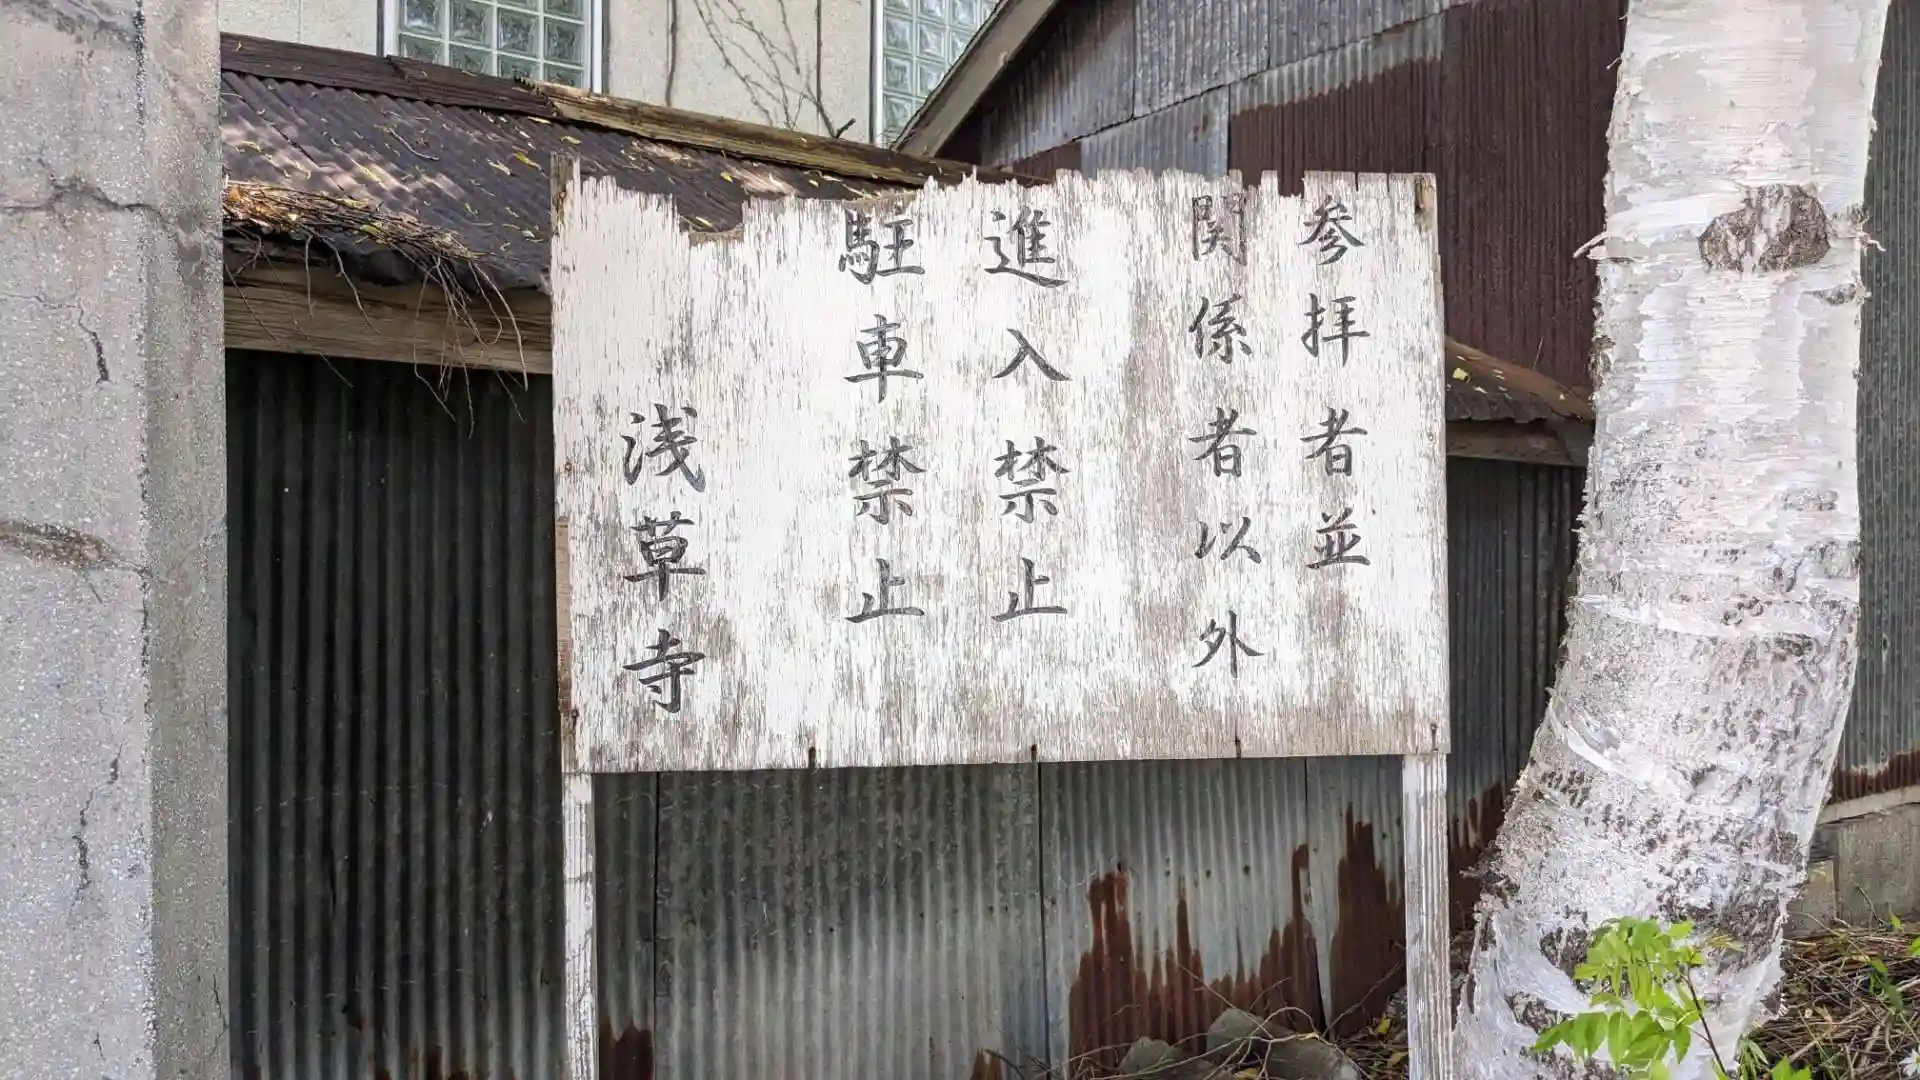 参拝者並
関係者以外
進入禁止
駐車禁止
浅草寺